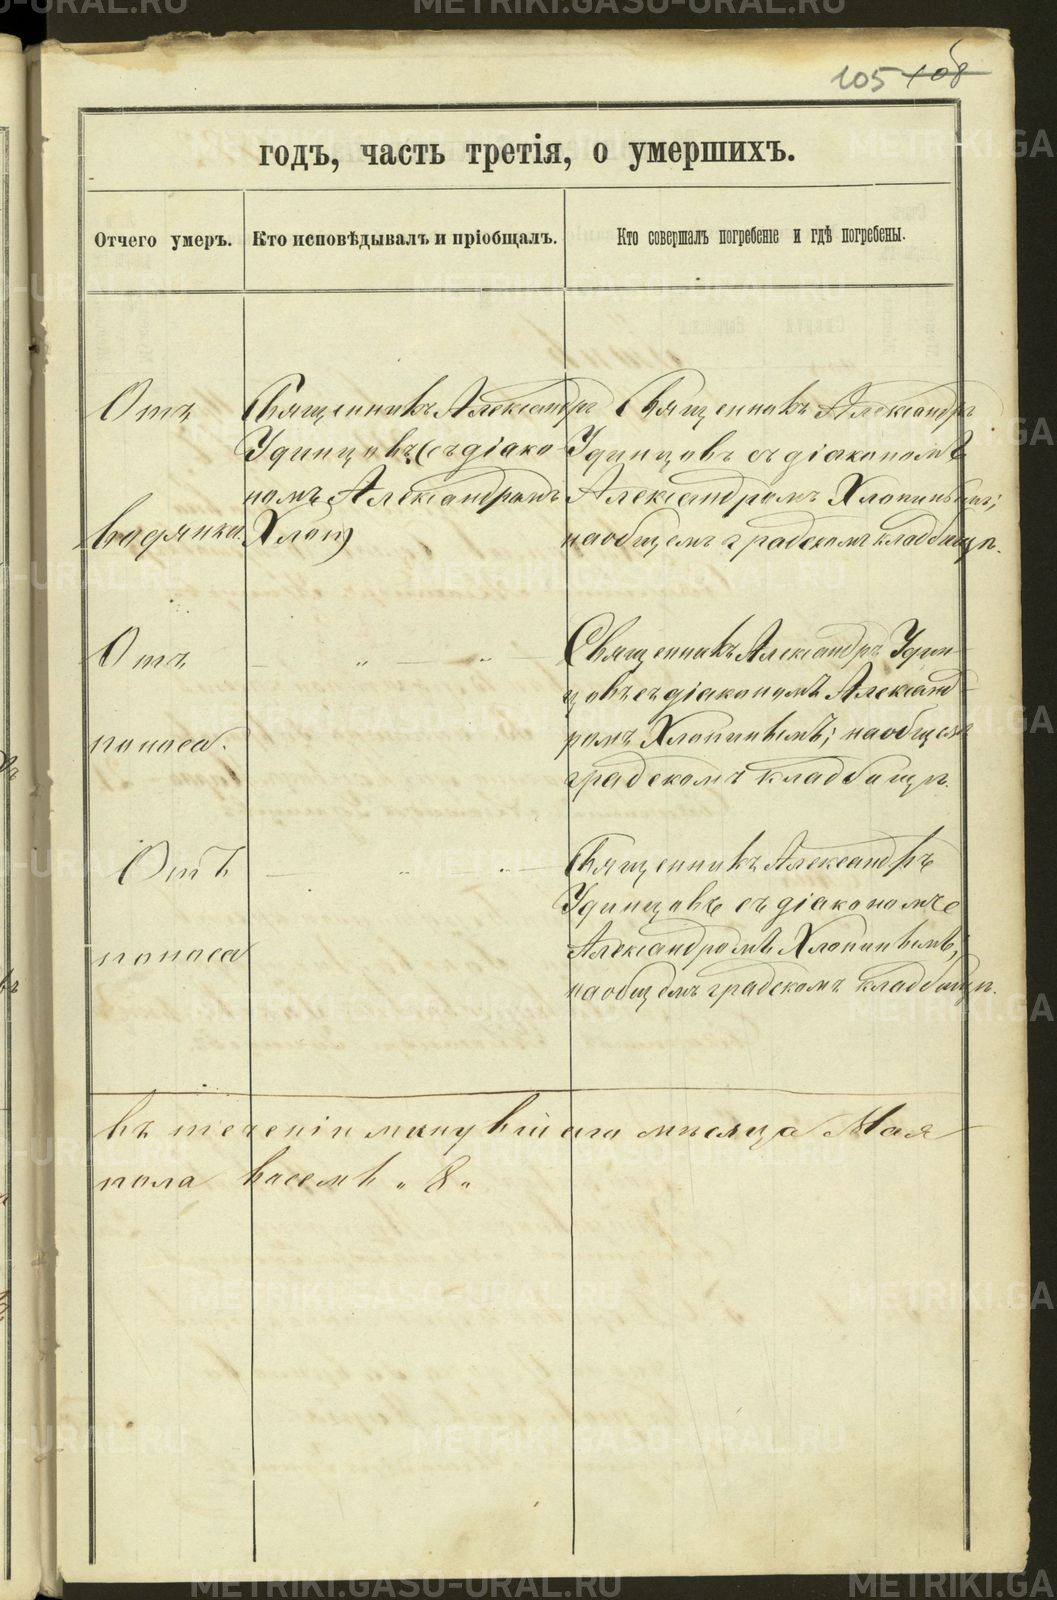 105 108
годъ, часть третія, о умершихъ.
Отчего умеръ. Кто исповѣдывалъ и пріобщалъ. Кто совершалъ погребеніе и гдѣ погребены.
Отъ
водянки.
Священникъ Александръ
Удинцовъ (съ діако
номъ Александромъ
Хлоп)
Священникъ Александръ
Удинцовъ съ діакономъ
Александромъ Хлопинымъ;
на общемъ градскомъ кладбищѣ.
Отъ
поноса.
— „ — „ —
Священникъ Александръ Удин-
цовъ съ діакономъ Александ-
ромъ Хлопинымъ; на общемъ
градскомъ кладбищѣ.
Отъ
поноса
— „ — „ —
Священникъ Александръ
Удинцовъ съ діакономъ
Александромъ Хлопинымъ;
на общемъ градскомъ кладбищѣ.
въ теченіи минувшаго мѣсяца Мая
пола восемь „8„
METRIKI.GASO-URAL.RU